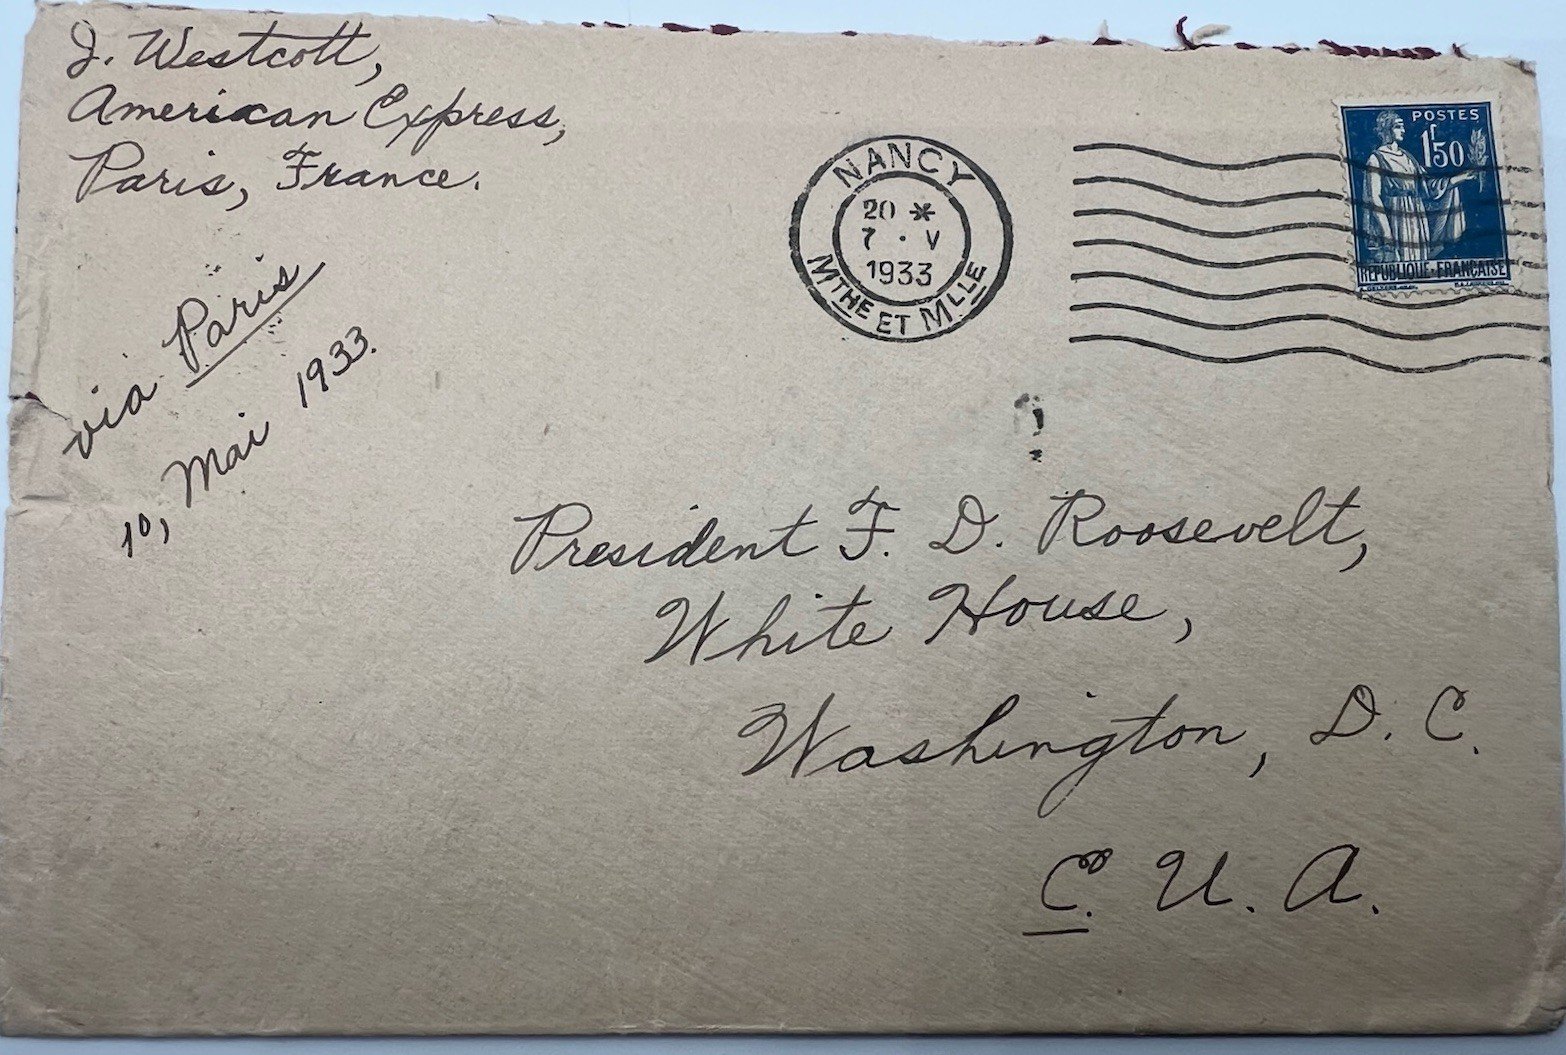 J. Westcott,
American Express,
Paris, France.
NANCY
20 *
7 · V
1933
MTHE ET MLLE
POSTES
1f50
REPUBLIQUE·FRANÇAISE
via Paris
10, Mai 1933.
President F. D. Roosevelt,
White House,
Washington, D. C.
C. U. A.